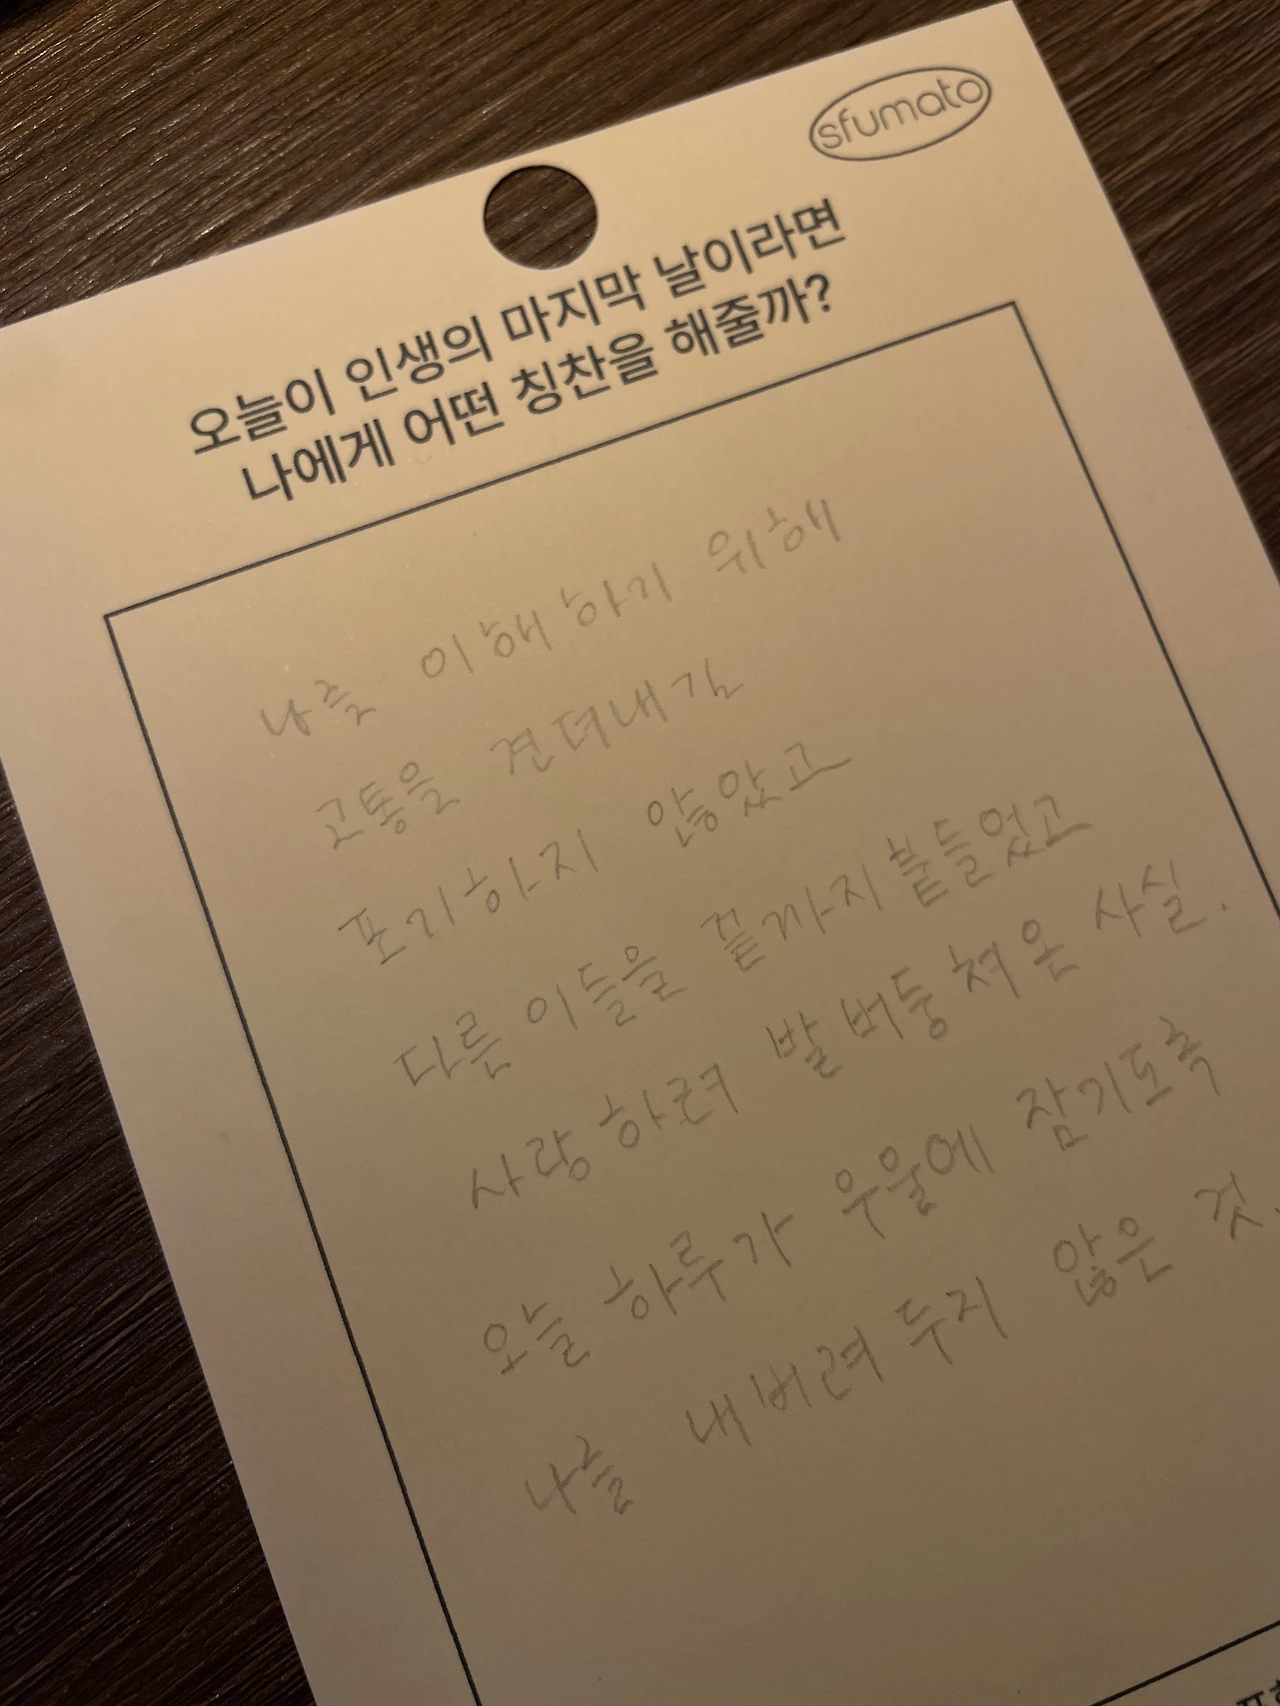 sfumato
오늘이 인생의 마지막 날이라면
나에게 어떤 칭찬을 해줄까?
나를 이해하기 위해
고통을 견뎌내길
포기하지 않았고
다른 이들을 끝까지 붙들었고
사랑하려 발버둥쳐온 사실.
오늘 하루가 우울에 잠기도록
나를 내버려 두지 않은 것.